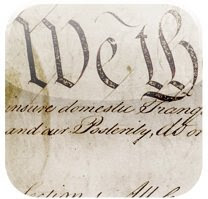 We th
insure domestic Tranq
and our Posterity, do or
All